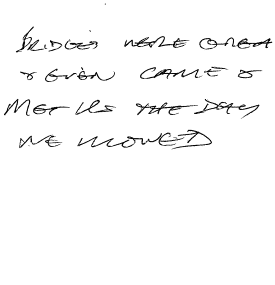 BRIDGES WERE GREAT
& EVEN CAME &
MET US THE DAY
WE MOVED